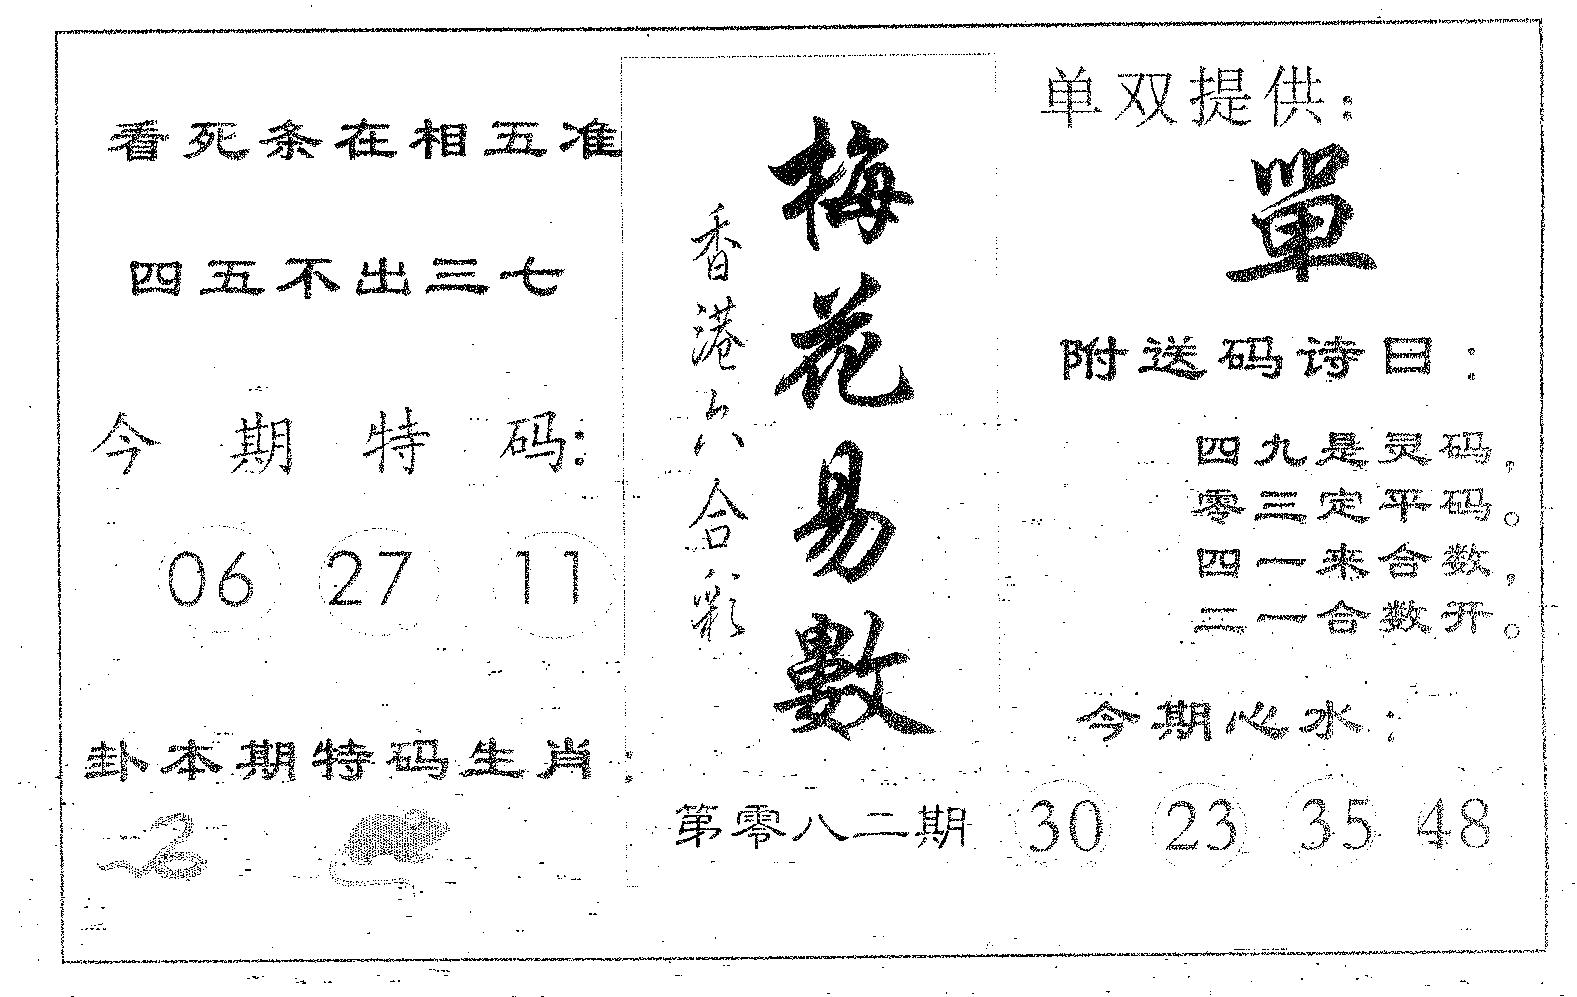 看死条在相五准
四五不出三七
今期特码:
06 27 11
卦本期特码生肖:
梅花易數
香港六合彩
第零八二期
单双提供:
單
附送码诗曰:
四九是灵码,
零三定平码。
四一来合数,
二一合数开。
今期心水:
30 23 35 48